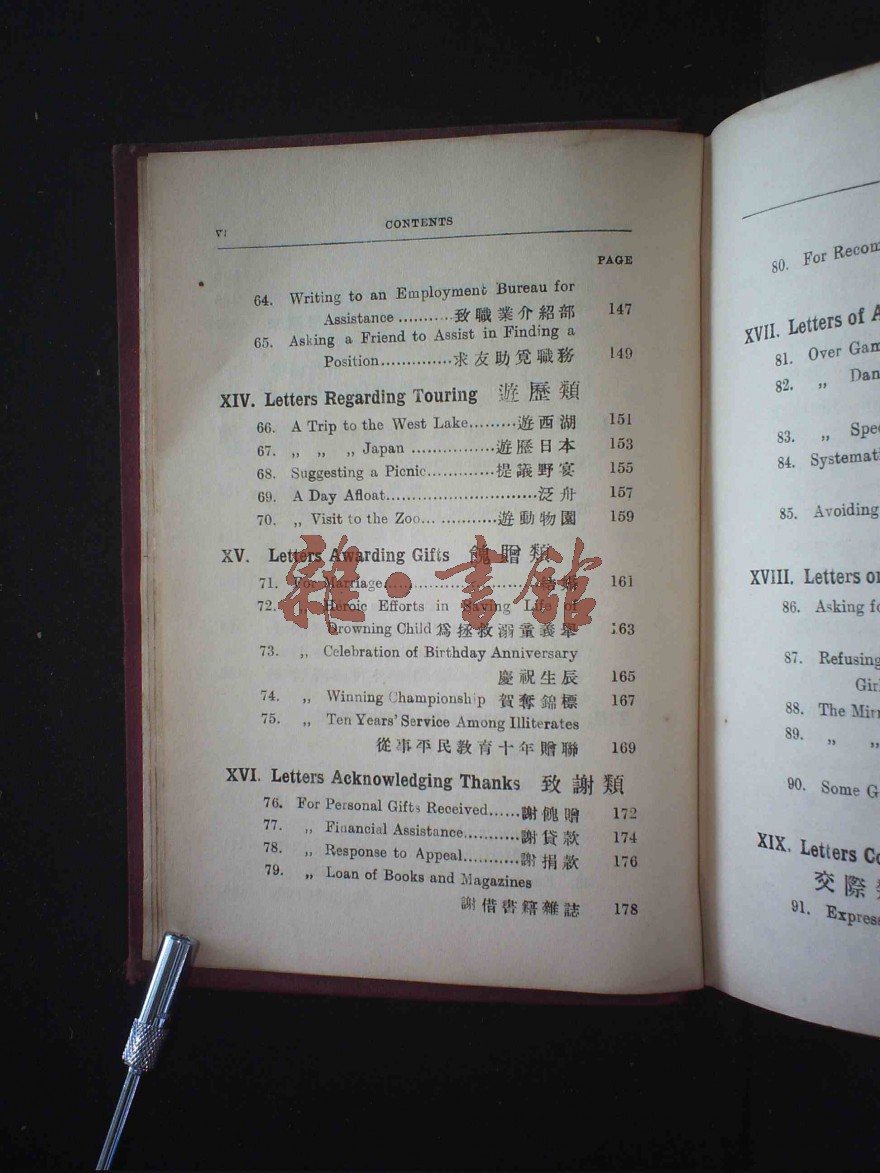 vi CONTENTS
PAGE
64. Writing to an Employment Bureau for
Assistance...........致職業介紹部 147
65. Asking a Friend to Assist in Finding a
Position..............求友助覓職務 149
XIV. Letters Regarding Touring 遊歷類
66. A Trip to the West Lake.........遊西湖 151
67. „ „ „ Japan ................遊歷日本 153
68. Suggesting a Picnic.............提議野宴 155
69. A Day Afloat.............................泛舟 157
70. „ Visit to the Zoo..............遊動物園 159
XV. Letters Awarding Gifts 餽贈類
71. For Marriage.............................. 161
72. „ Heroic Efforts in Saving Life of
Drowning Child 爲拯救溺童義舉 163
73. „ Celebration of Birthday Anniversary
慶祝生辰 165
74. „ Winning Championship 賀奪錦標 167
75. „ Ten Years' Service Among Illiterates
從事平民教育十年贈聯 169
XVI. Letters Acknowledging Thanks 致謝類
76. For Personal Gifts Received......謝餽贈 172
77. „ Financial Assistance...........謝貸款 174
78. „ Response to Appeal...........謝捐款 176
79. „ Loan of Books and Magazines
謝借書籍雜誌 178
雜·書館
80. For
XVII. Letters of
81. Over
82. „
83. „
84.
85. Avoiding
XVIII. Letters
86. Asking
87. Refusing
88. The
89. „ „
90. Some
XIX. Letters
交際
91.